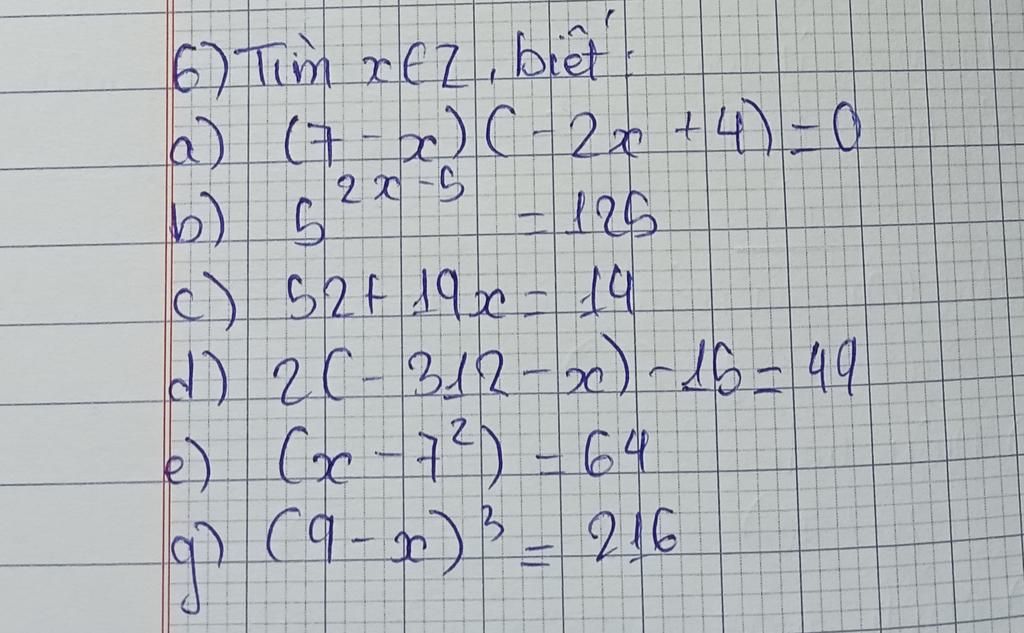 6) Tìm x ∈ Z, biết:
a) (7 - x)(-2x + 4) = 0
b) 5^{2x-5} = 125
c) 52 + 19x = 14
d) 2(-312 - x) - 15 = 49
e) (x - 7²) = 64
g) (9 - x)³ = 216